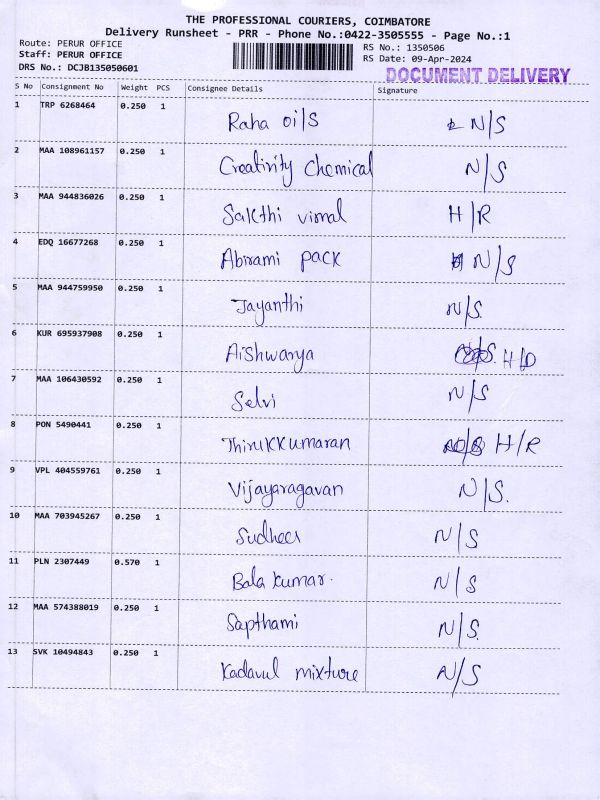 THE PROFESSIONAL COURIERS, COIMBATORE
Delivery Runsheet - PRR - Phone No.:0422-3505555 - Page No.:1
Route: PERUR OFFICE
Staff: PERUR OFFICE
DRS No.: DCJB135050601
RS No.: 1350506
RS Date: 09-Apr-2024
DOCUMENT DELIVERY
S No Consignment No Weight PCS Consignee Details Signature
1 TRP 6268464 0.250 1 Raha oils N/S
2 MAA 108961157 0.250 1 Creativity Chemical N/S
3 MAA 944836026 0.250 1 Sakthi vimal H/R
4 EDQ 16677268 0.250 1 Abirami pack N/S
5 MAA 944759950 0.250 1 Jayanthi N/S.
6 KUR 695937908 0.250 1 Aishwarya H/D
7 MAA 106430592 0.250 1 Selvi N/S
8 PON 5490441 0.250 1 Thirukkumaran H/R
9 VPL 404559761 0.250 1 Vijayaragavan N/S.
10 MAA 703945267 0.250 1 Sudheer N/S
11 PLN 2307449 0.570 1 Bala kumar. N/S
12 MAA 574388019 0.250 1 Sapthami N/S.
13 SVK 10494843 0.250 1 Kadavul mixture N/S